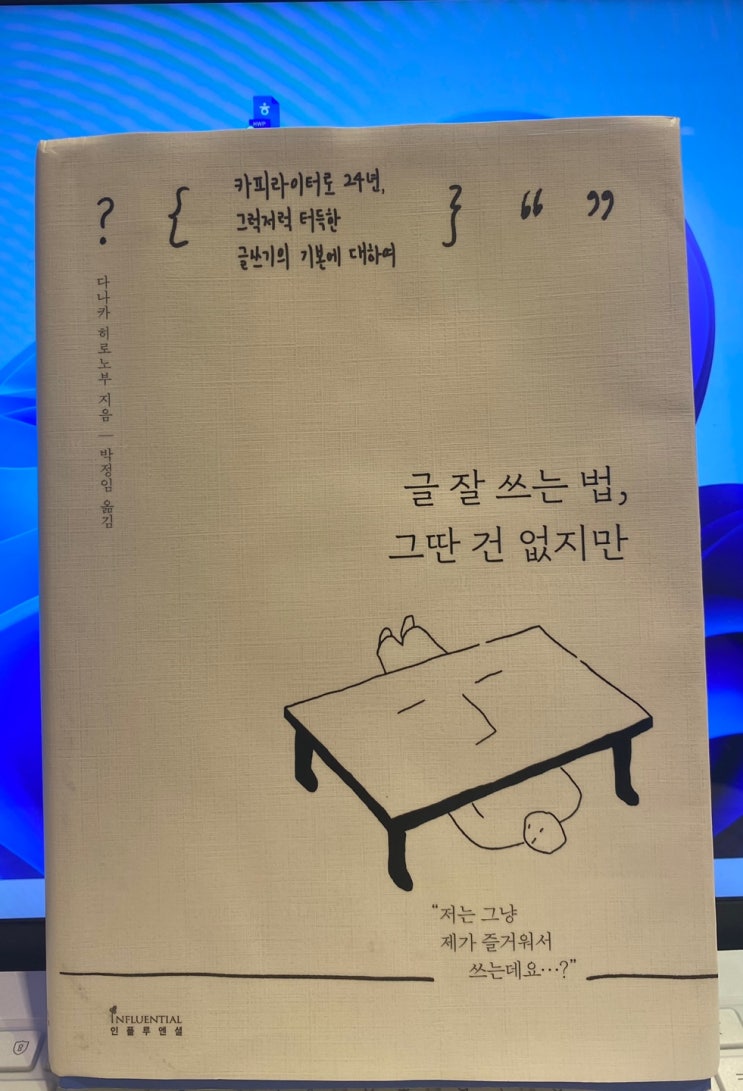 ㅎ
HWP
?
{
카피라이터로 24년,
그럭저럭 터득한
글쓰기의 기본에 대하여
}
“ ”
다나카 히로노부 지음 — 박정임 옮김
글 잘 쓰는 법,
그딴 건 없지만
“저는 그냥
제가 즐거워서
쓰는데요…?”
INFLUENTIAL
인플루엔셜
8